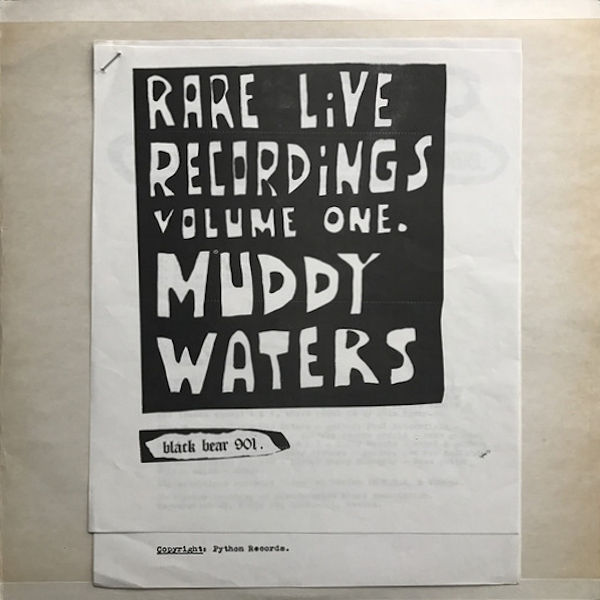 RARE LiVE
RECORDiNGS
VOLUME ONE.
MUDDY
WATERS
black bear 901.
Copyright: Python Records.